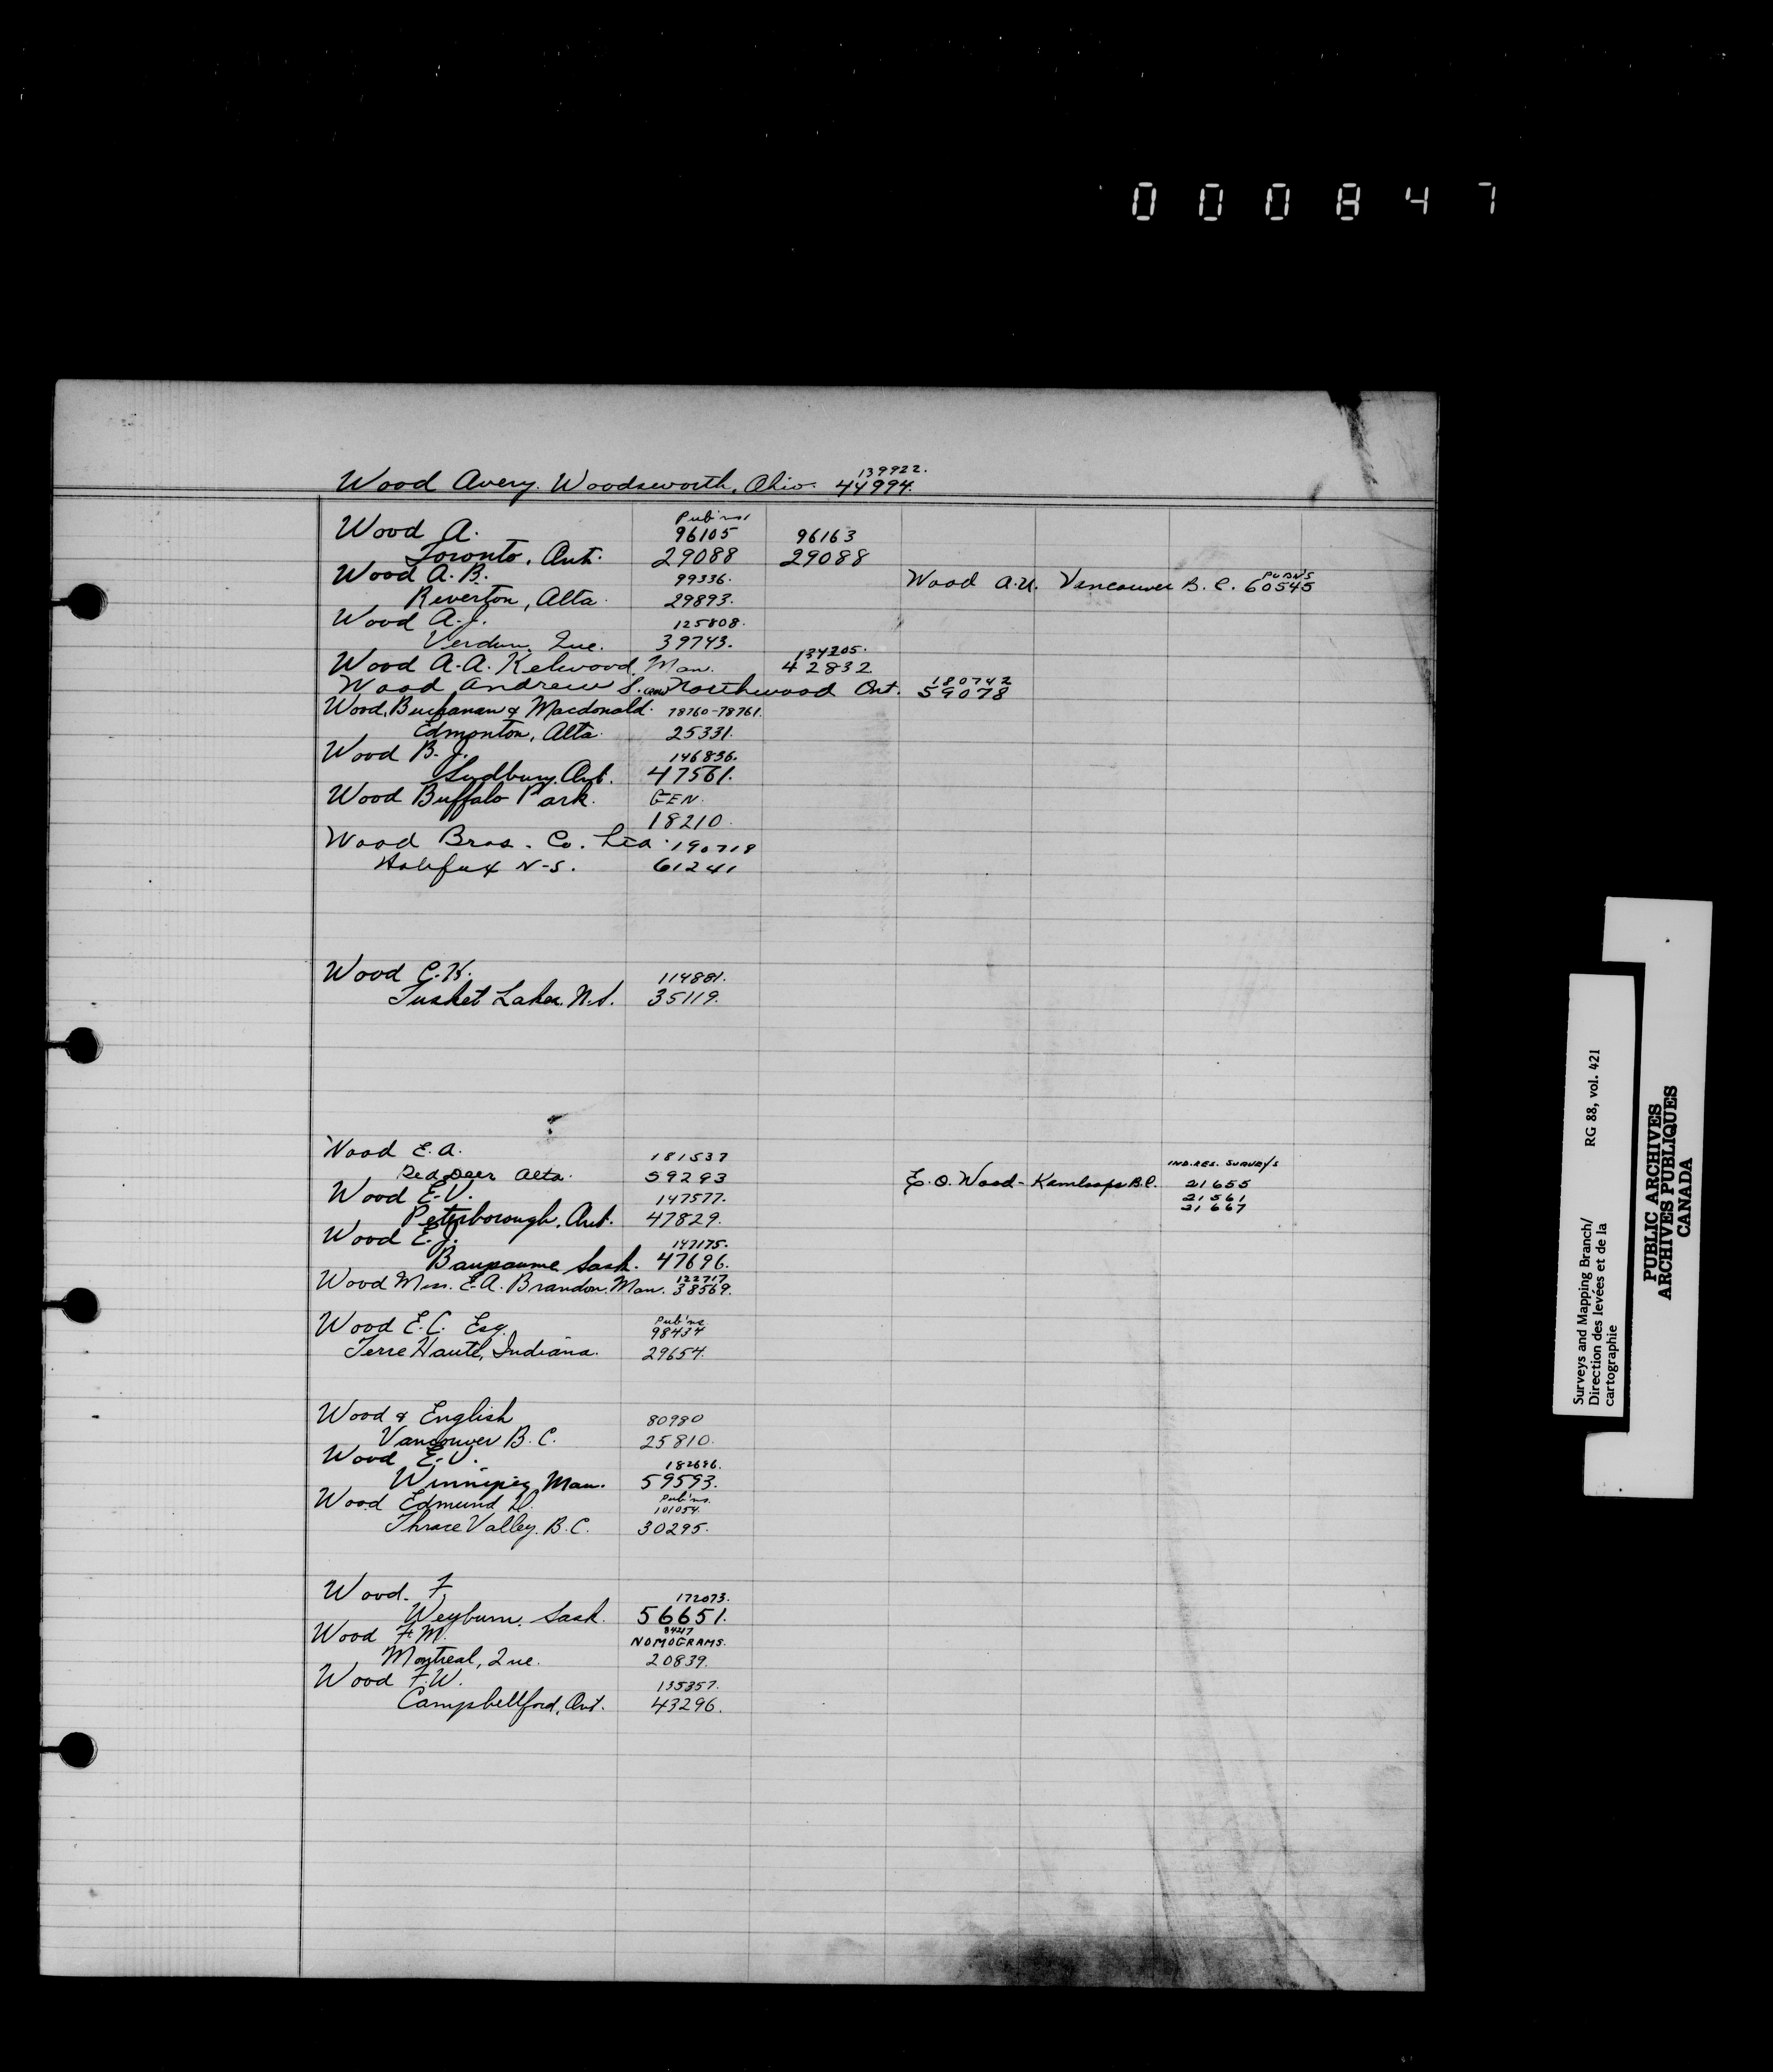 000847
139922.
Wood Avery. Woodsworth, Ohio. 44994.
Pub'ns
Wood A. 96105 96163
Toronto, Ont. 29088 29088
Wood A.B. 99336.
Riverton, Alta. 29893.
PUBN'S
Wood A.U. Vancouver B.C. 60545
Wood A.J. 125808.
Verdun, Que. 39743.
134205.
Wood A.A. Kelwood, Man. 42832
180742
Wood Andrew S. Northwood Ont. 59078
Wood, Buchanan & Macdonald. 78760-78761.
Edmonton, Alta. 25331.
Wood B.J. 146836.
Sudbury, Ont. 47561.
Wood Buffalo Park. GEN.
18210.
Wood Bros. Co. Ltd. 190718
Halifax N-S. 61241
Wood C.K. 114881.
Tusket Lakes, N.S. 35119.
Wood E.A. 181537
Red Deer Alta. 59293
IND. RES. SURVEYS
E.O. Wood - Kamloops B.C. 21655
21561
21667
Wood E.V. 147577.
Peterborough, Ont. 47829.
Wood E.J. 147175.
Baupaume Sask. 47696.
122717
Wood Miss. E.A. Brandon, Man. 38569.
Pub'ns
Wood E.C. Esq. 98434
Terre Haute, Indiana. 29654.
Wood & English 80980
Vancouver B.C. 25810.
Wood E.V. 182696.
Winnipeg Man. 59593.
Pub'ns.
Wood Edmund 101054
Thrace Valley, B.C. 30295.
Wood. F. 172073.
Weyburn, Sask. 56651.
8427
Wood F.M. NOMOGRAMS.
Montreal, Que. 20839.
Wood F.W. 135357.
Campbellford, Ont. 43296.
Surveys and Mapping Branch/ RG 88, vol. 421
Direction des levées et de la
cartographie
PUBLIC ARCHIVES
ARCHIVES PUBLIQUES
CANADA